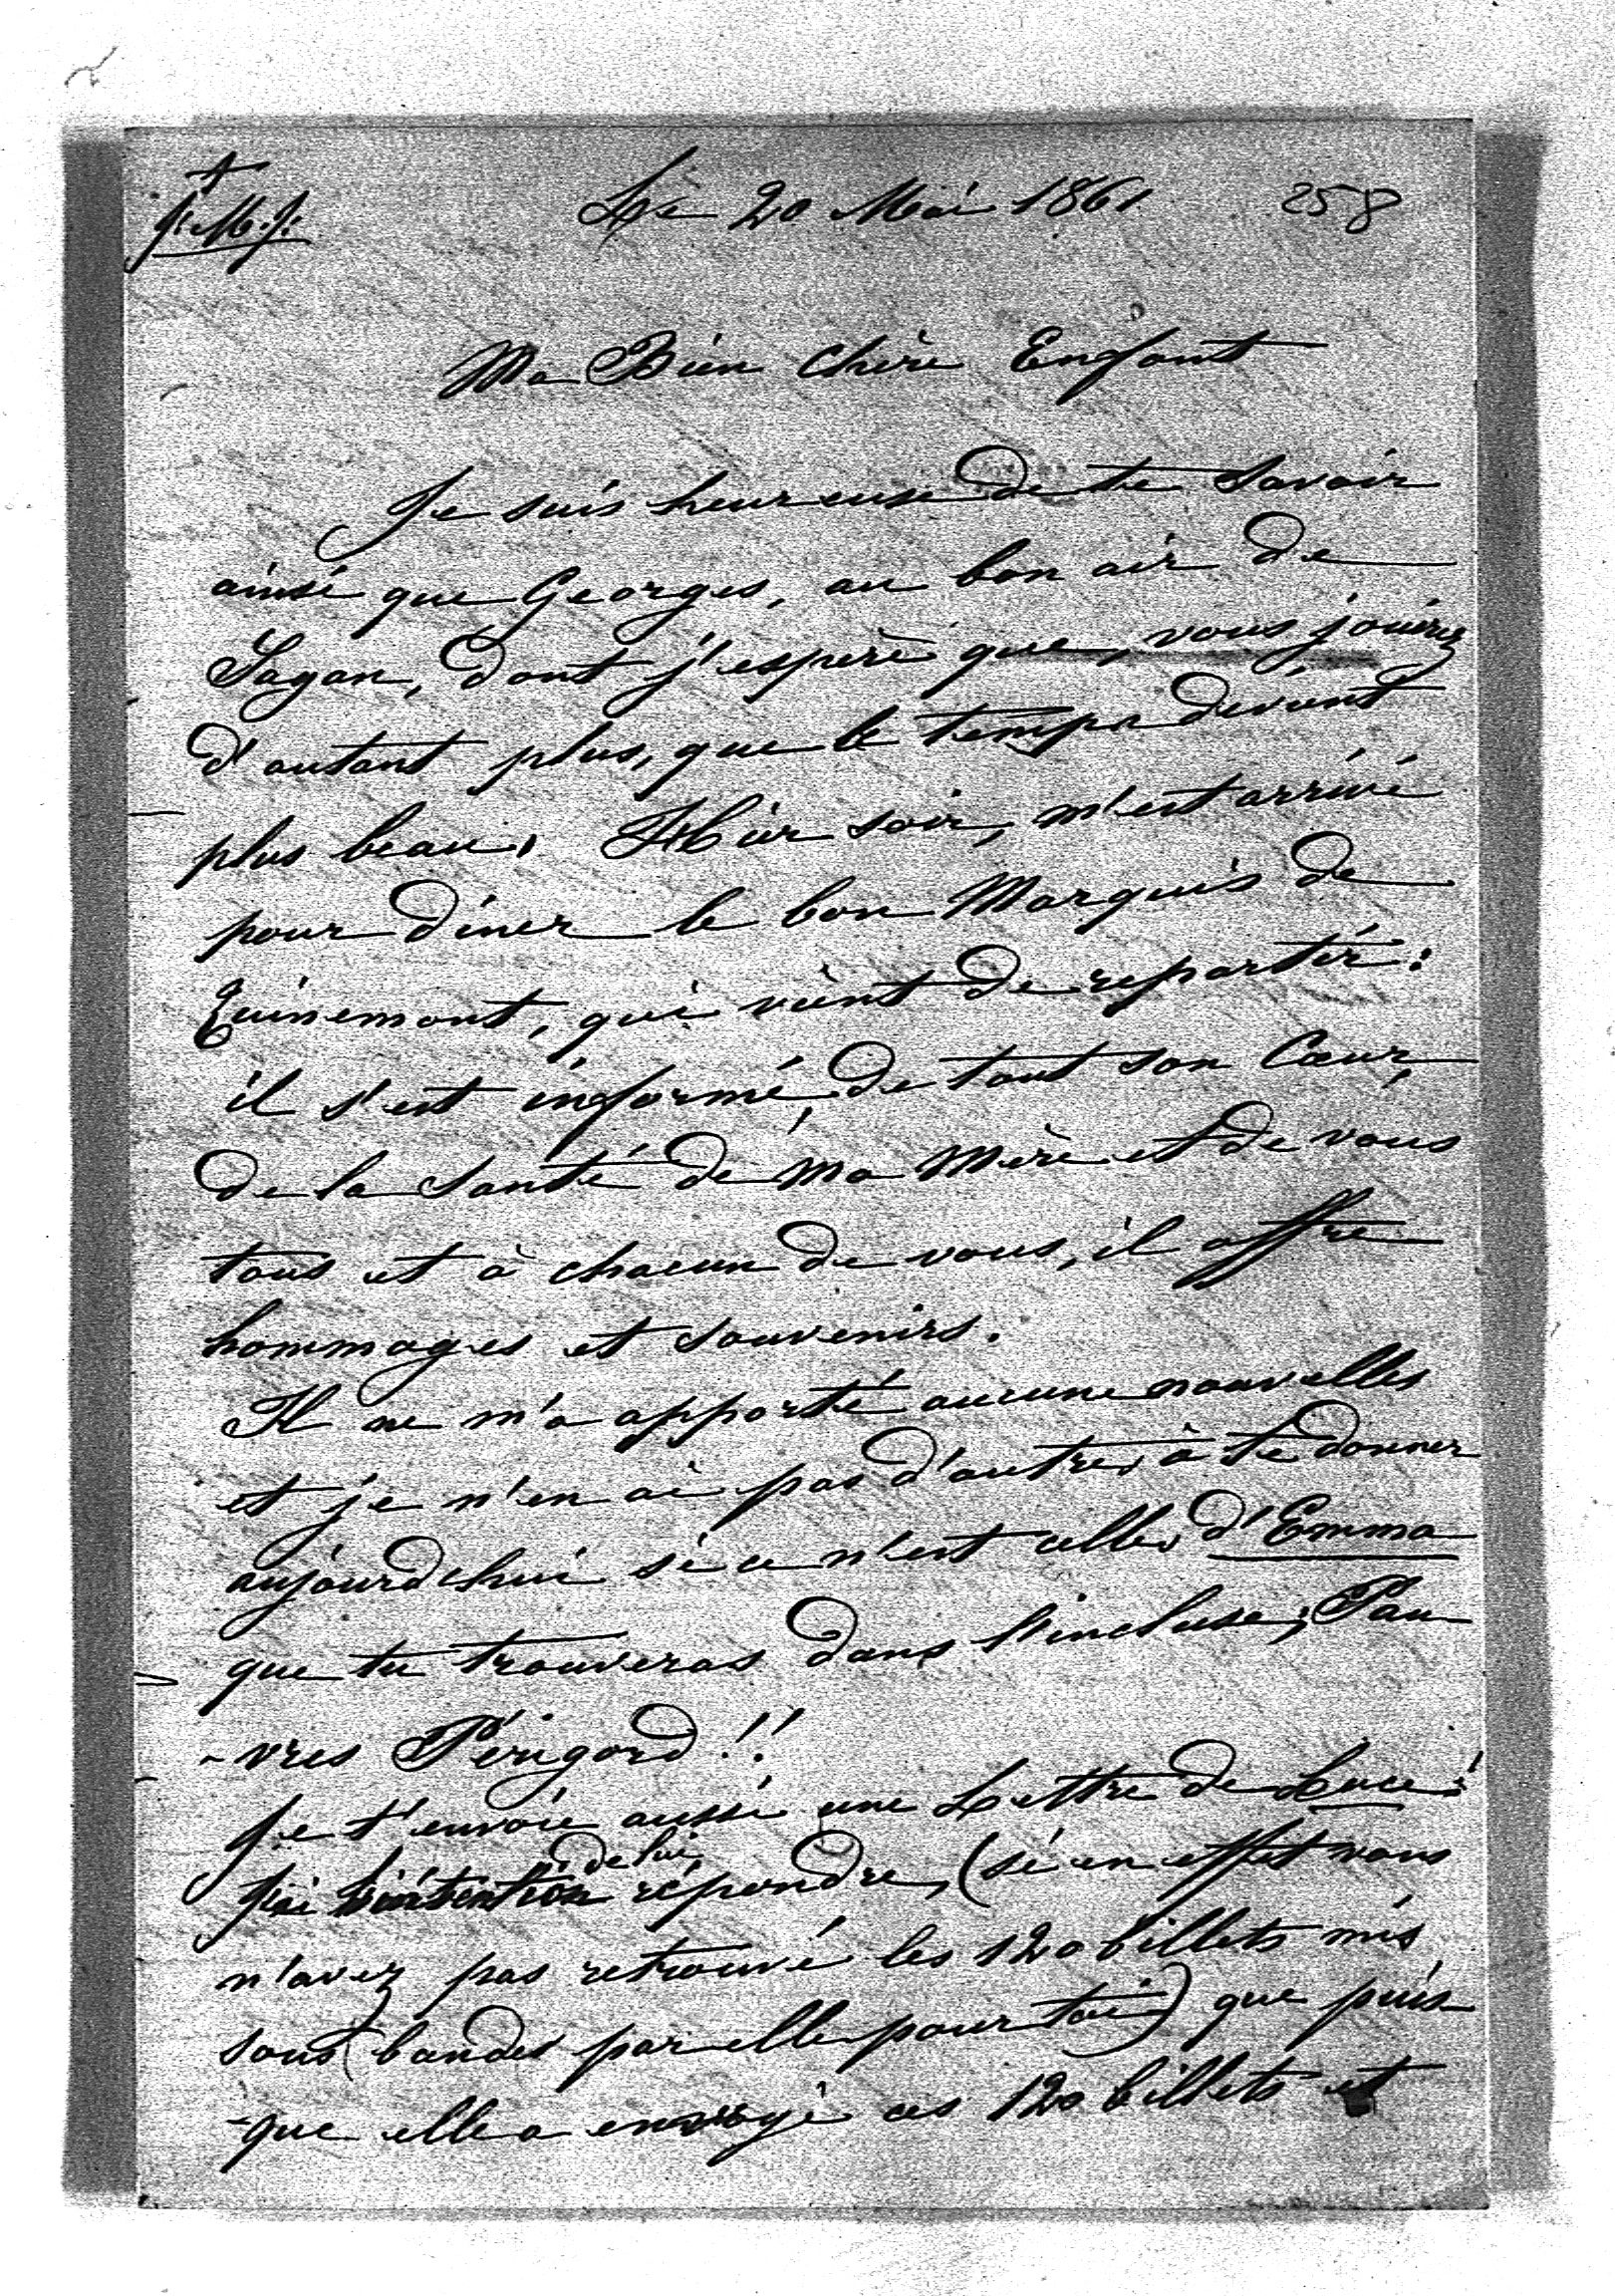 J. M. J.
Le 20 Mai 1861 258
Ma Bien Chère Enfant
Je suis heureuse de te savoir
ainsi que Georges, au bon air de
Sagan, dont j'espère que, vous jouirez
d'autant plus, que le temps devient
plus beau. Hier soir, m'est arrivé
pour dîner le bon Marquis de
Quinemont, qui vient de repartir :
il s'est informé, de tout son Cœur,
de la santé de ma Mère et de vous
tous et à chacun de vous, il offre
hommages et souvenirs.
Il ne m'a apporté aucune nouvelles
et je n'en ai pas d'autres à te donner
aujourdhui si ce n'est celles d'Emma
que tu trouveras dans l'incluse; Pau
-vres Périgord !!
Je t'envoie aussi une Lettre de Luce :
J'ai l'intention de lui répondre, (si en effet vous
n'avez pas retrouvé les 120 billets mis
sous bandes par elle pour toi) que puis
-que elle a envoyé ces 120 billets et